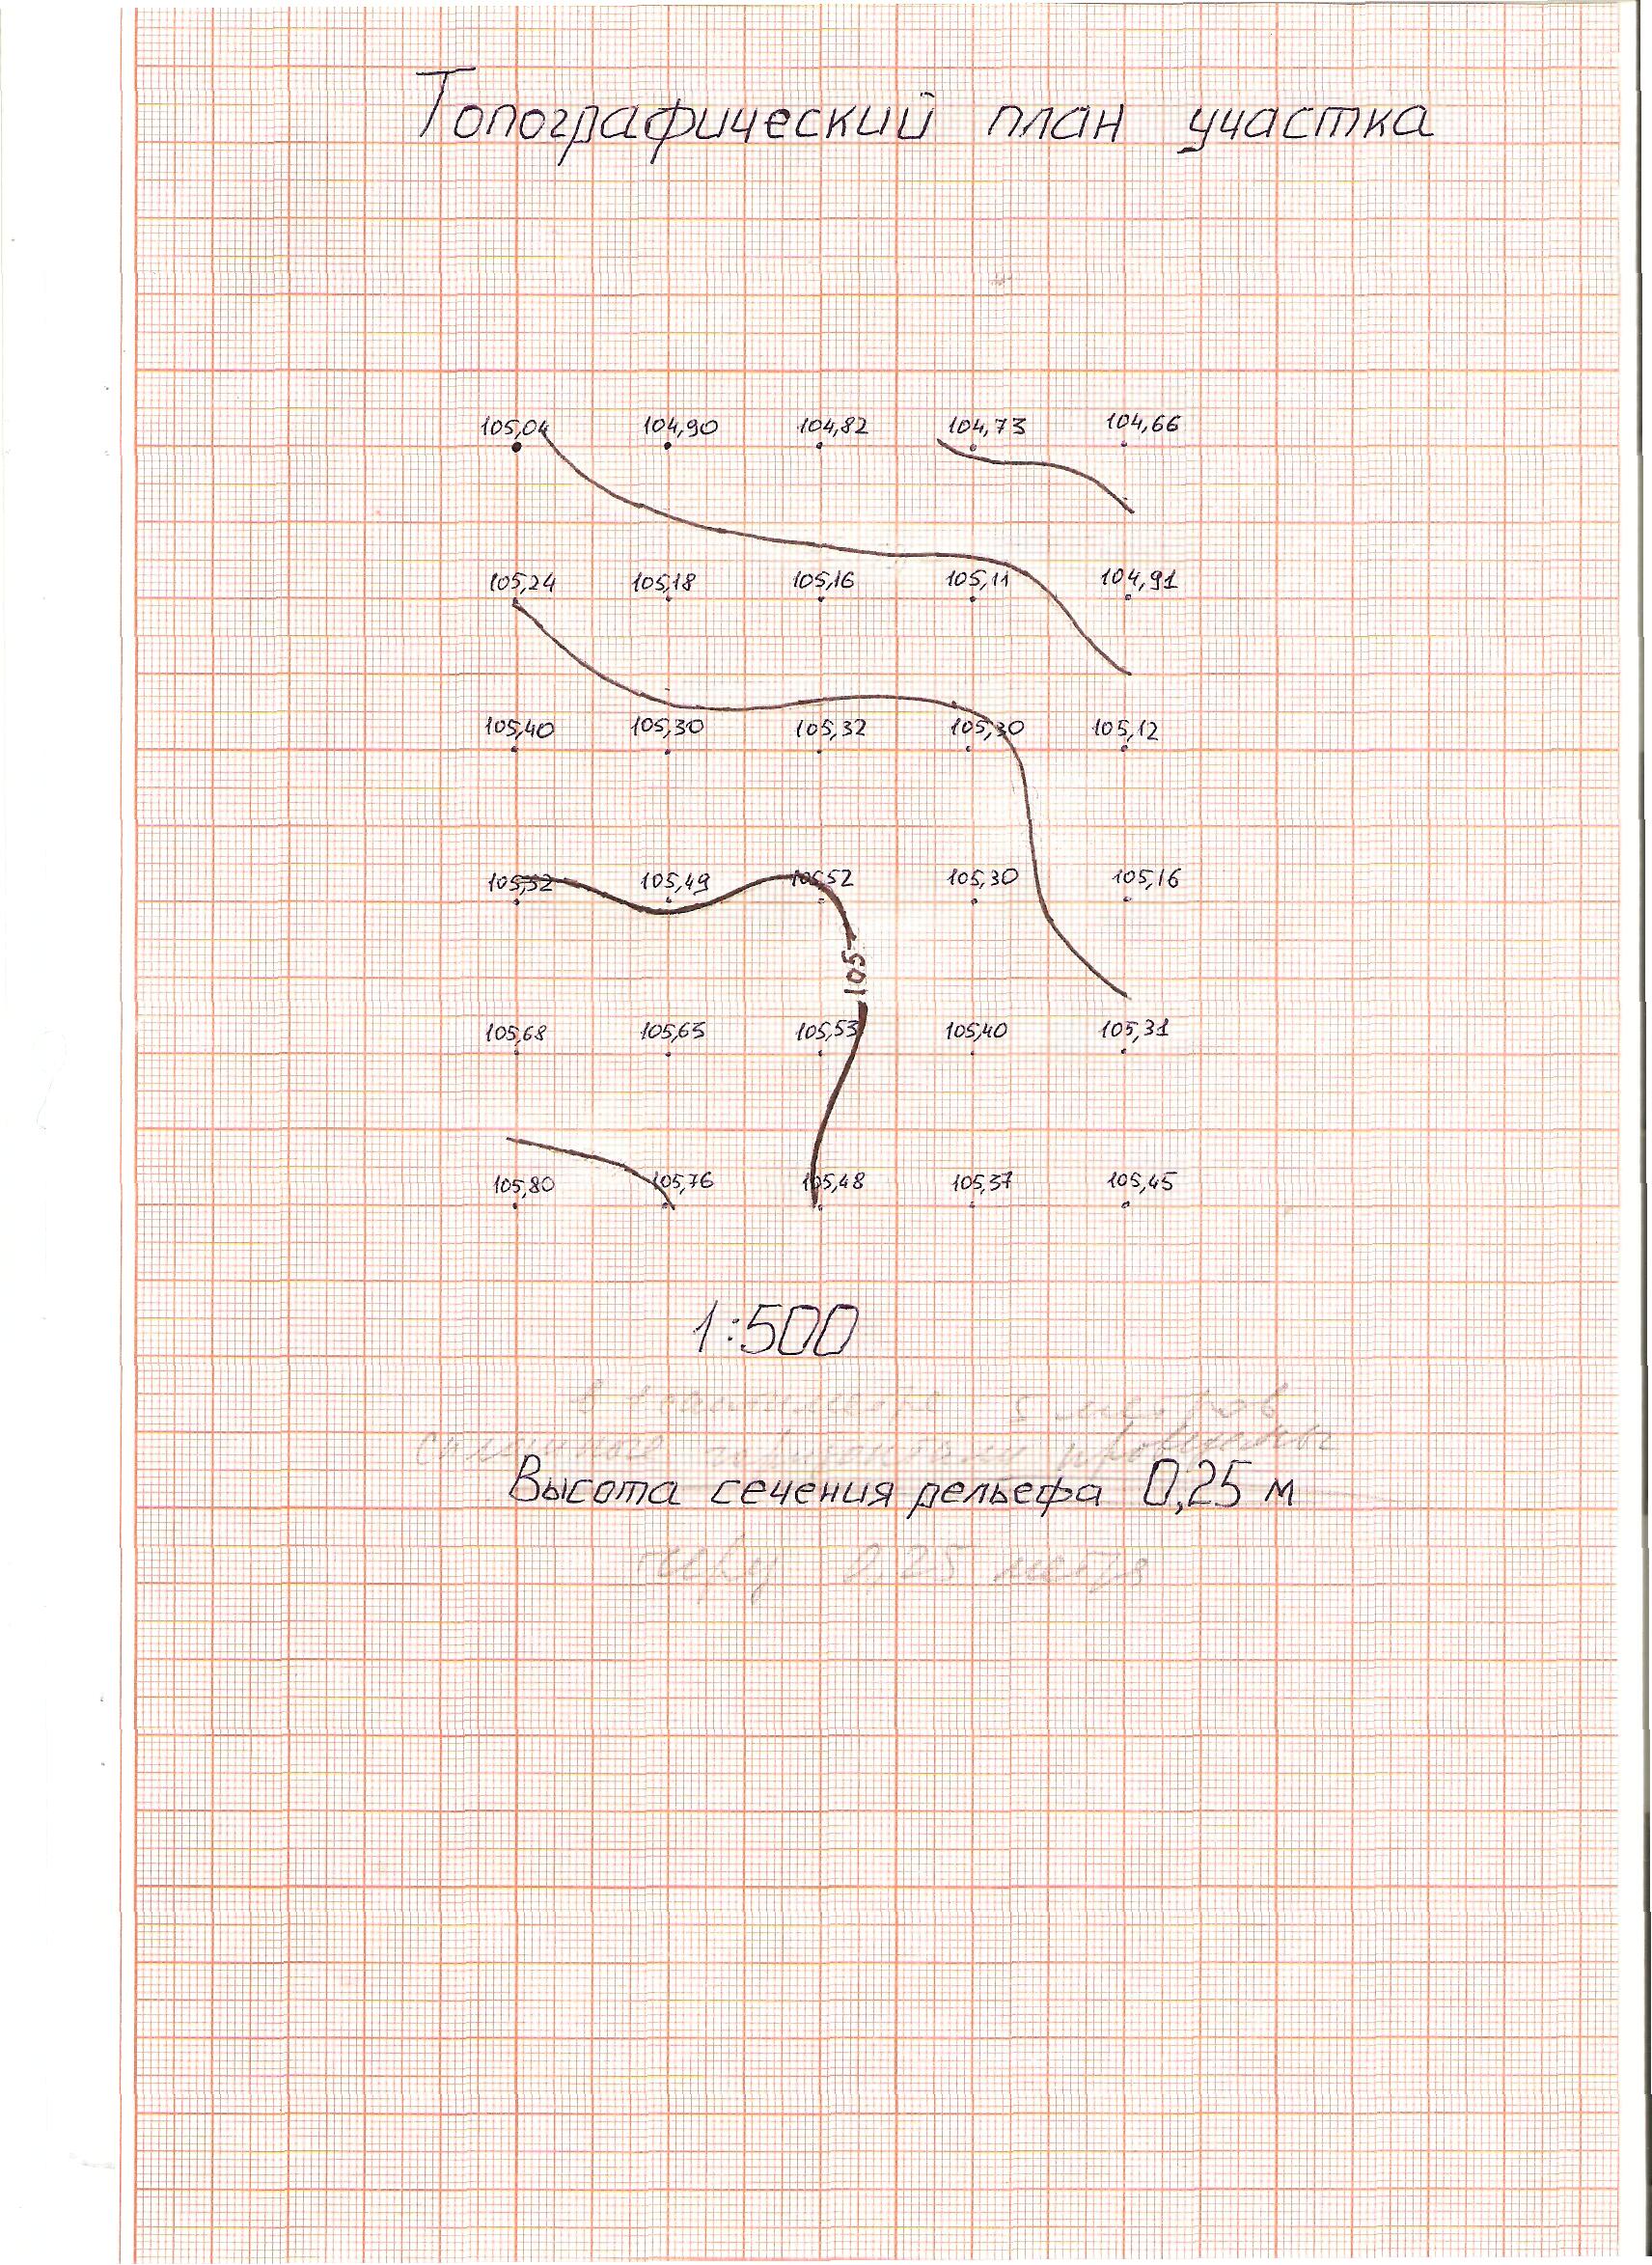 Топографический план участка
105,04 104,90 104,82 104,73 104,66
105,24 105,18 105,16 105,11 104,91
105,40 105,30 105,32 105,30 105,12
105,52 105,49 105,52 105,30 105,16
105
105,68 105,65 105,53 105,40 105,31
105,80 105,76 105,48 105,37 105,45
1:500
в 1 сантиметре 5 метров
сплошные горизонтали проведены
Высота сечения рельефа 0,25 м
через 0,25 метра